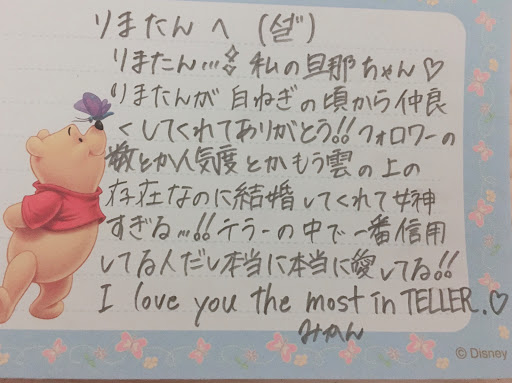 りまたんへ (설)
りまたん…✧ 私の旦那ちゃん♡
りまたんが白ねぎの頃から仲良
くしてくれてありがとう!!フォロワーの
数とか人気度とかもう雲の上の
存在なのに結婚してくれて女神
すぎる…!!テラーの中で一番信用
してる人だし本当に本当に愛してる!!
I love you the most in TELLER.♡
みかん
© Disney